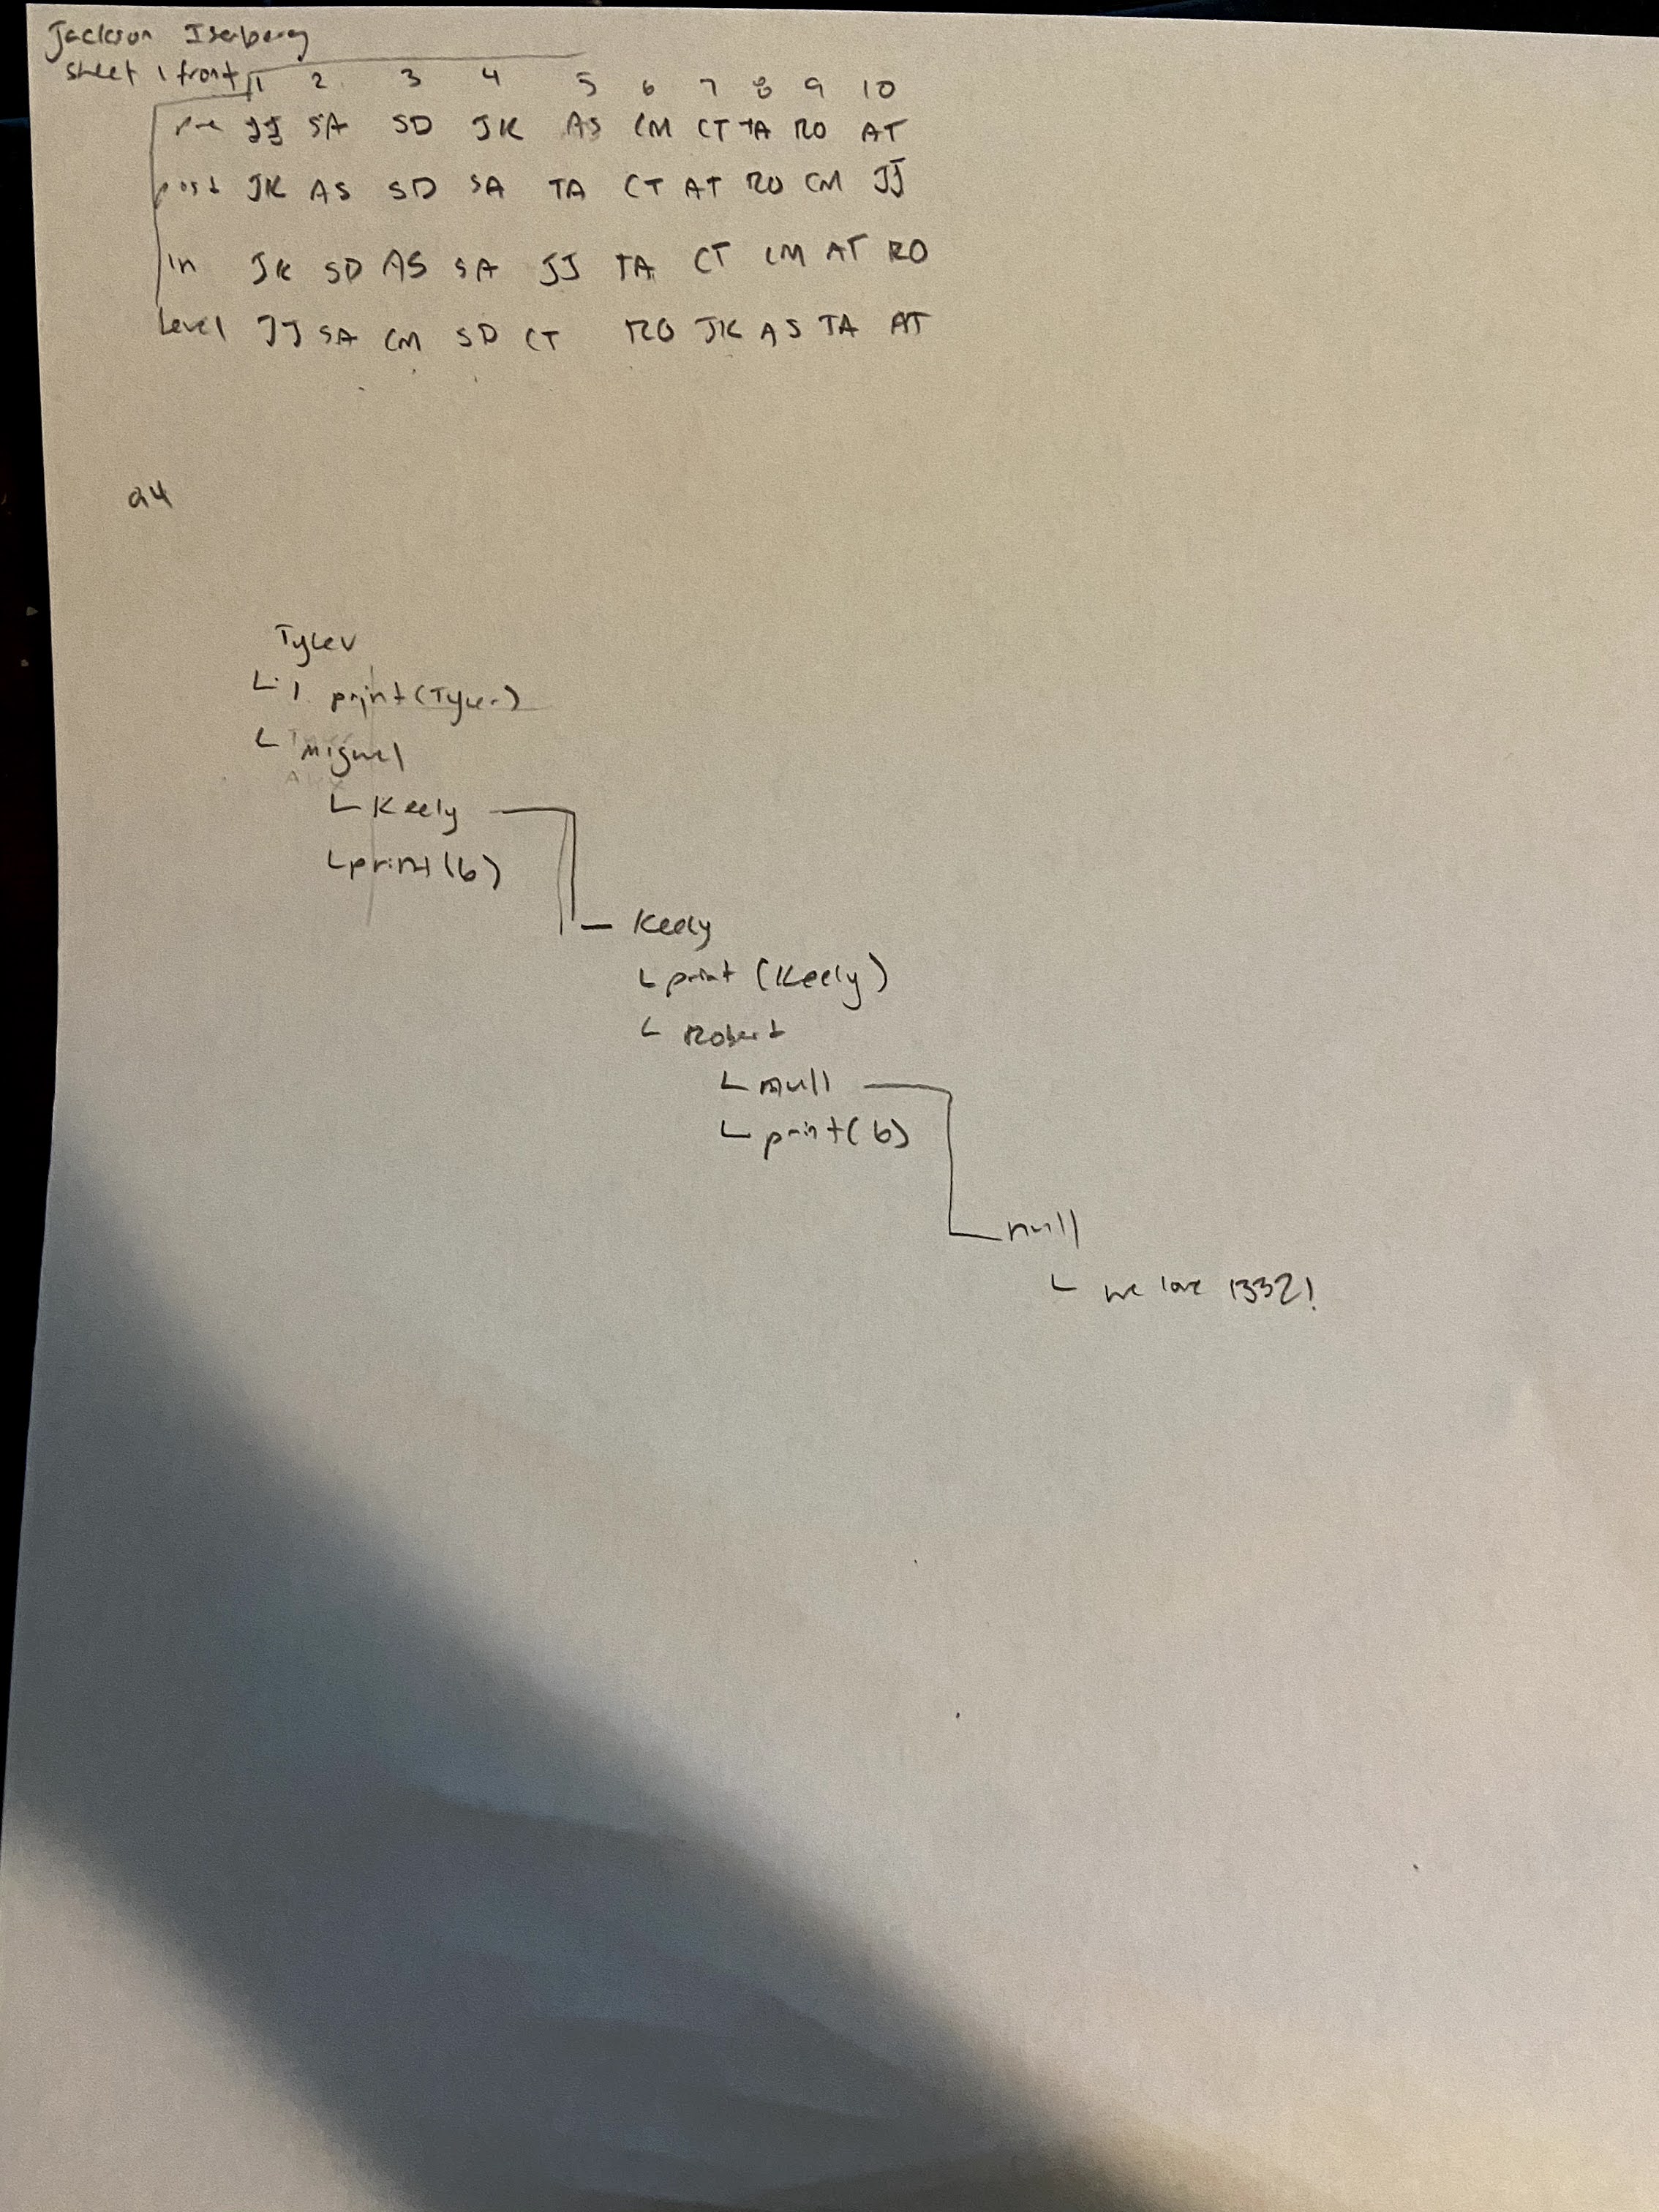 Jackson Isenberg
sheet 1 front
1 2 3 4 5 6 7 8 9 10
pre JJ SA SD JK AS CM CT TA RO AT
post JK AS SD SA TA CT AT RO CM JJ
in JK SD AS SA JJ TA CT CM AT RO
Level JJ SA CM SD CT RO JK AS TA AT
Q4
Tyler
1. print(Tyler)
Miguel
Keely
print(b)
Keely
print (Keely)
Robert
null
print(b)
null
we love 1332!